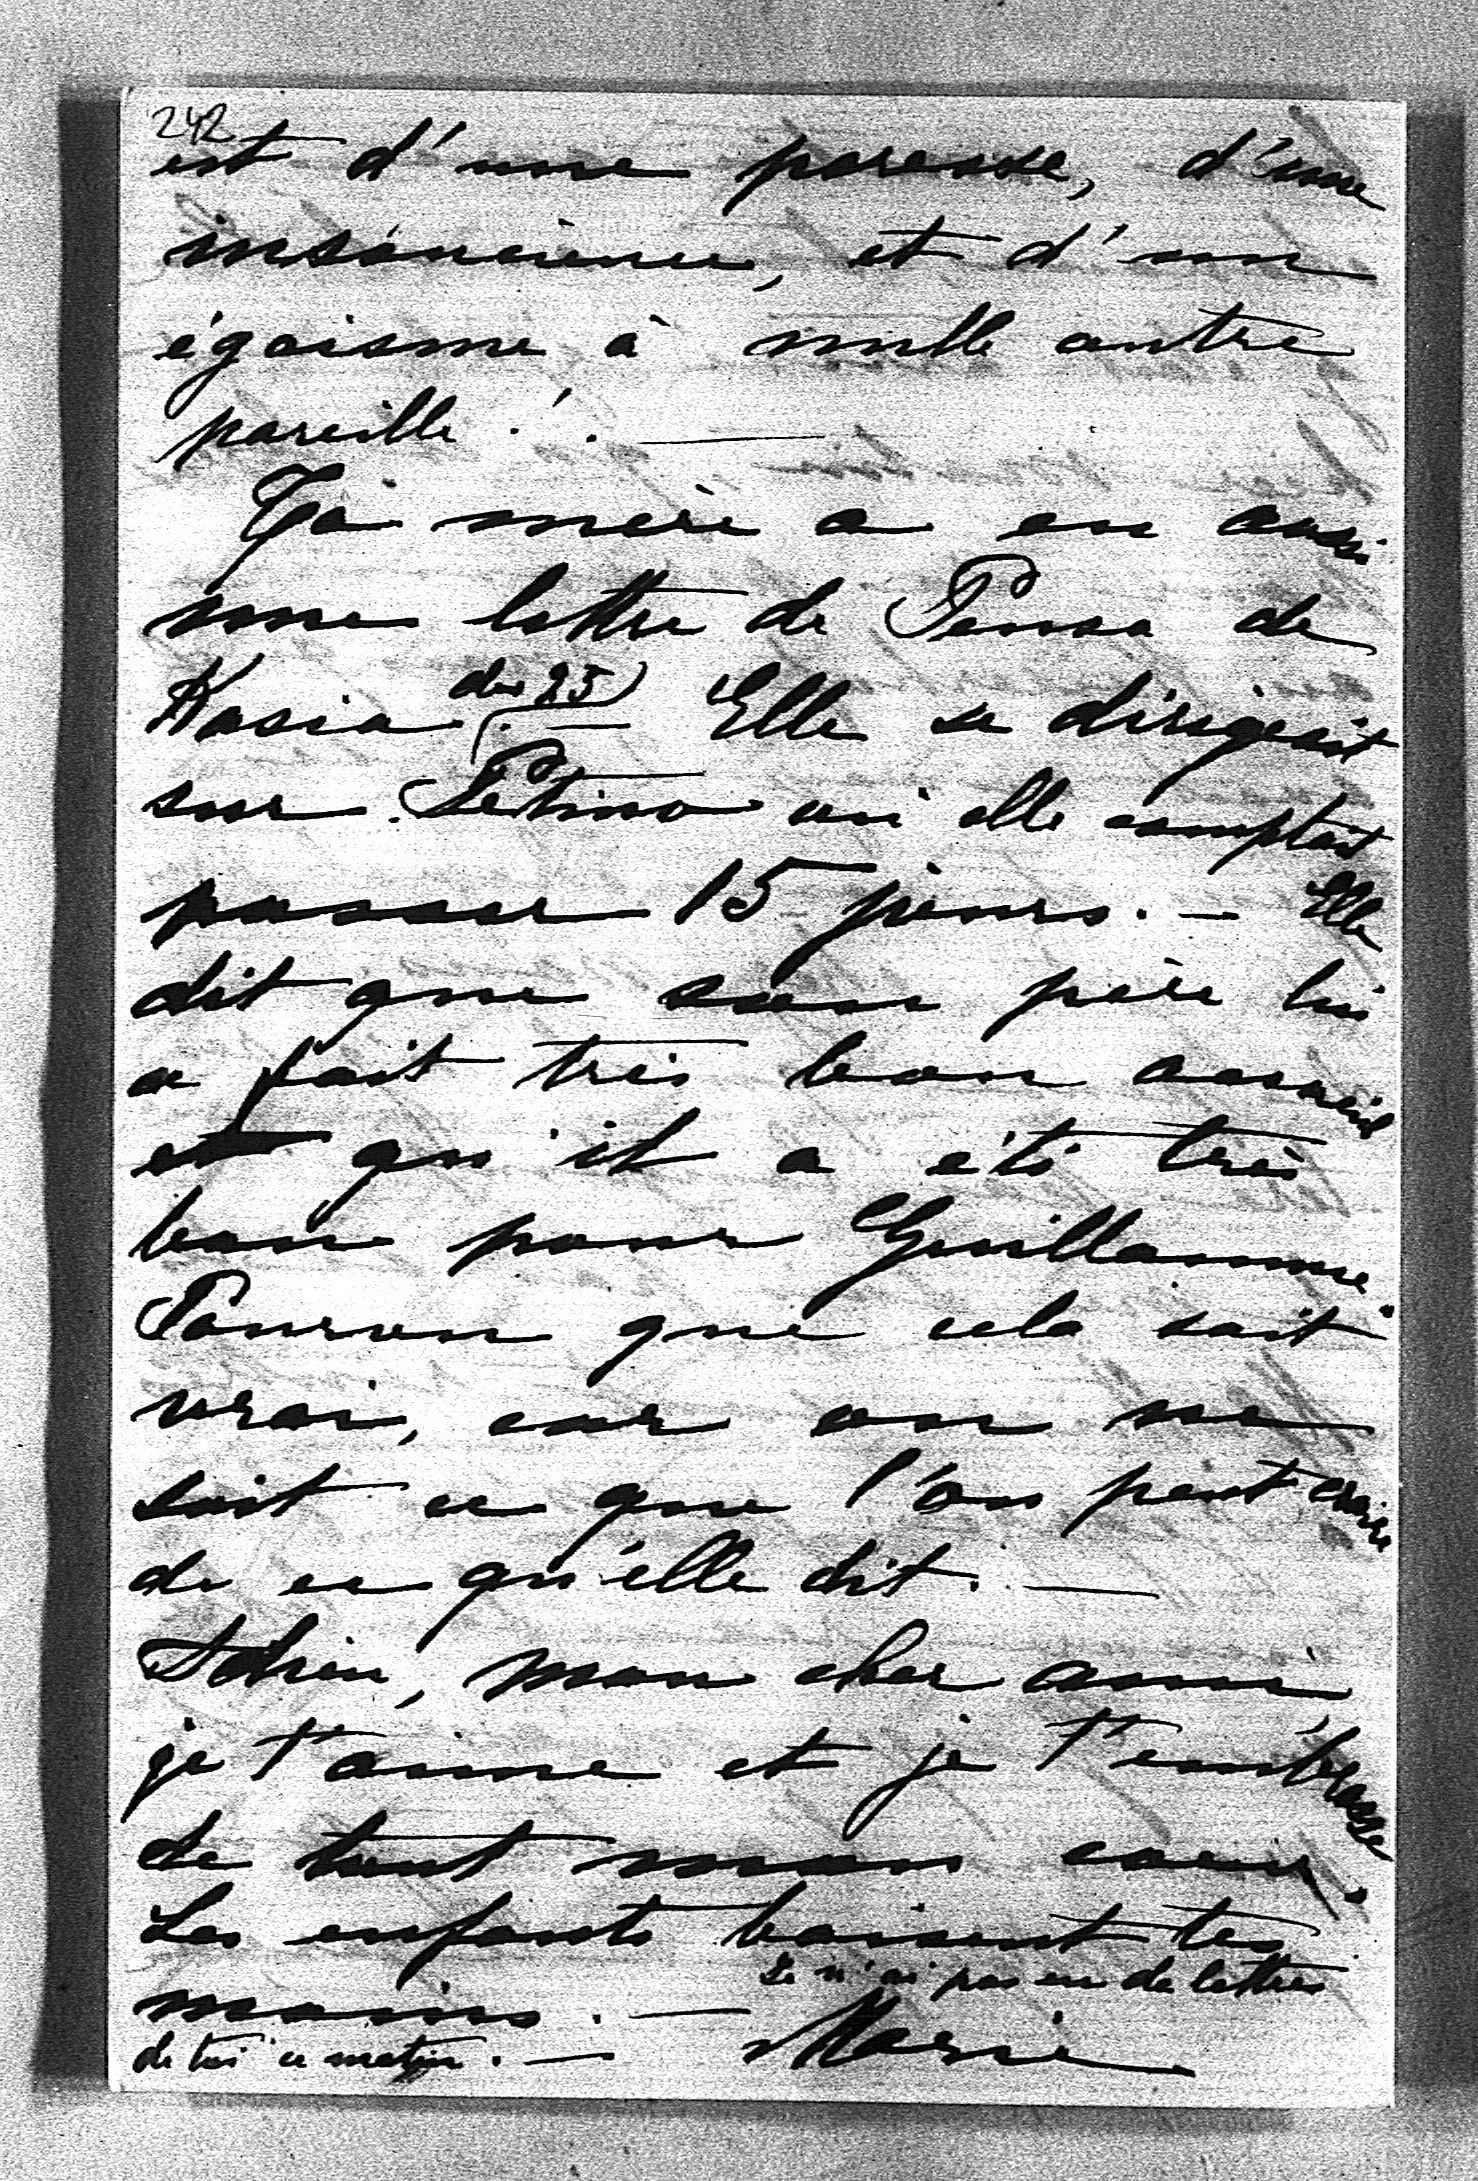 242
est d'une paresse, d'une
insouciance, et d'un
égoisme à nulle autre
pareille ! . —
Ta mère a eu aussi
une lettre de Pensa de
Kasia du 25) Elle se dirigeait
sur où elle comptait
passer 15 jours. — Elle
dit que son père lui
a fait très bon accueil
et qu'il a été très
bon pour Guillaume
Pourvu que cela soit
vrai, car on ne
sait ce que l'on peut croire
de ce qu'elle dit. —
Adieu, mon cher ami,
je t'aime et je t'embrasse
de tout mon cœur.
Les enfants baisent tes
mains. —
Je n'ai pas eu de lettres
de toi ce matin. —
Marie